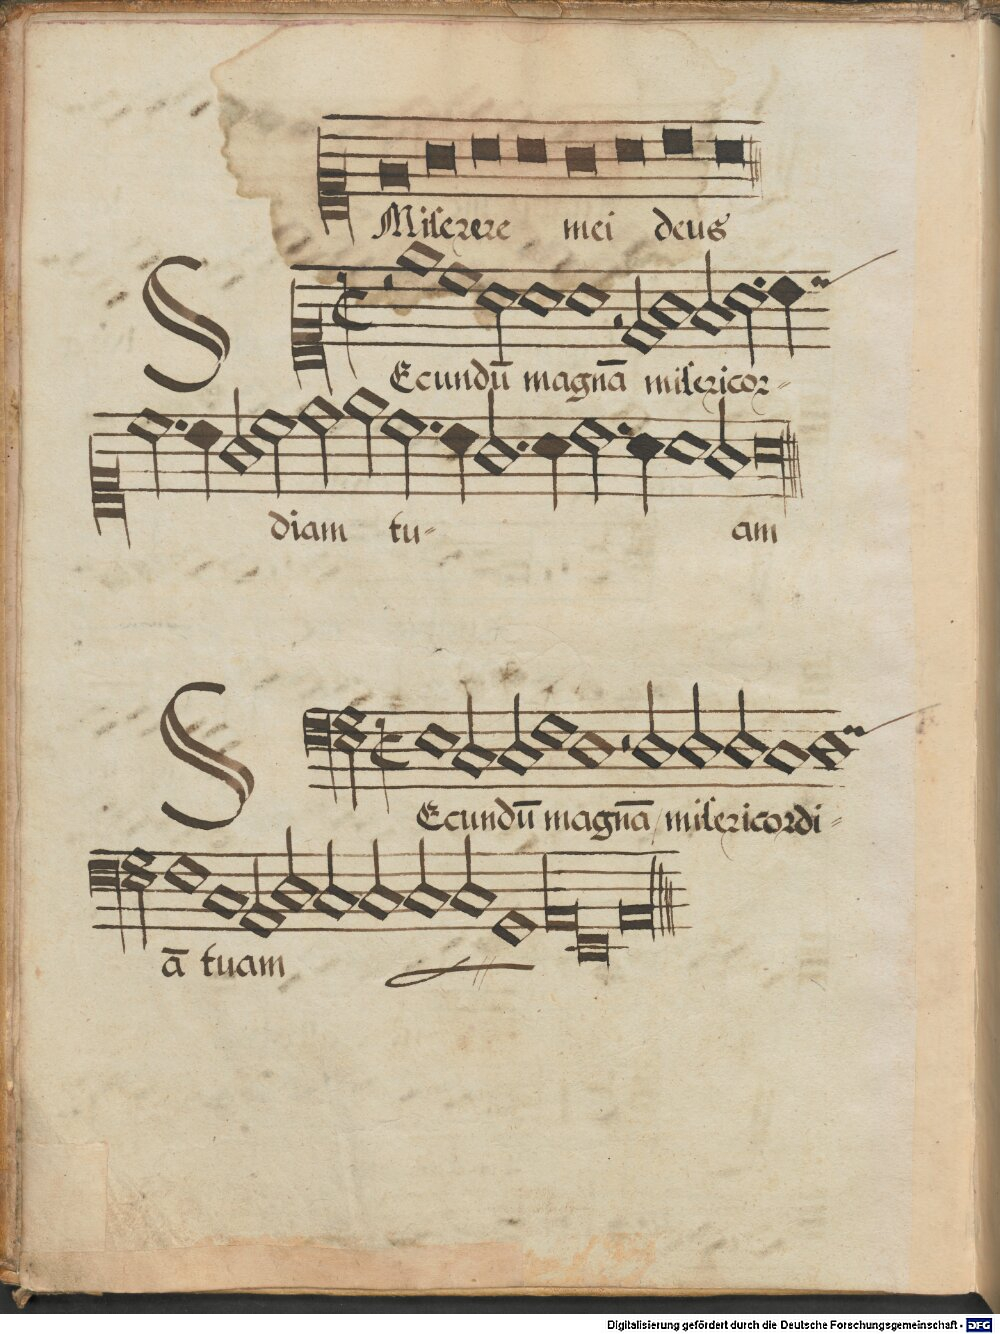 Miserere mei deus
SEcundū magnā misericor-
diam tu- am
SEcundū magnā misericordi-
ā tuam
Digitalisierung gefördert durch die Deutsche Forschungsgemeinschaft - DFG